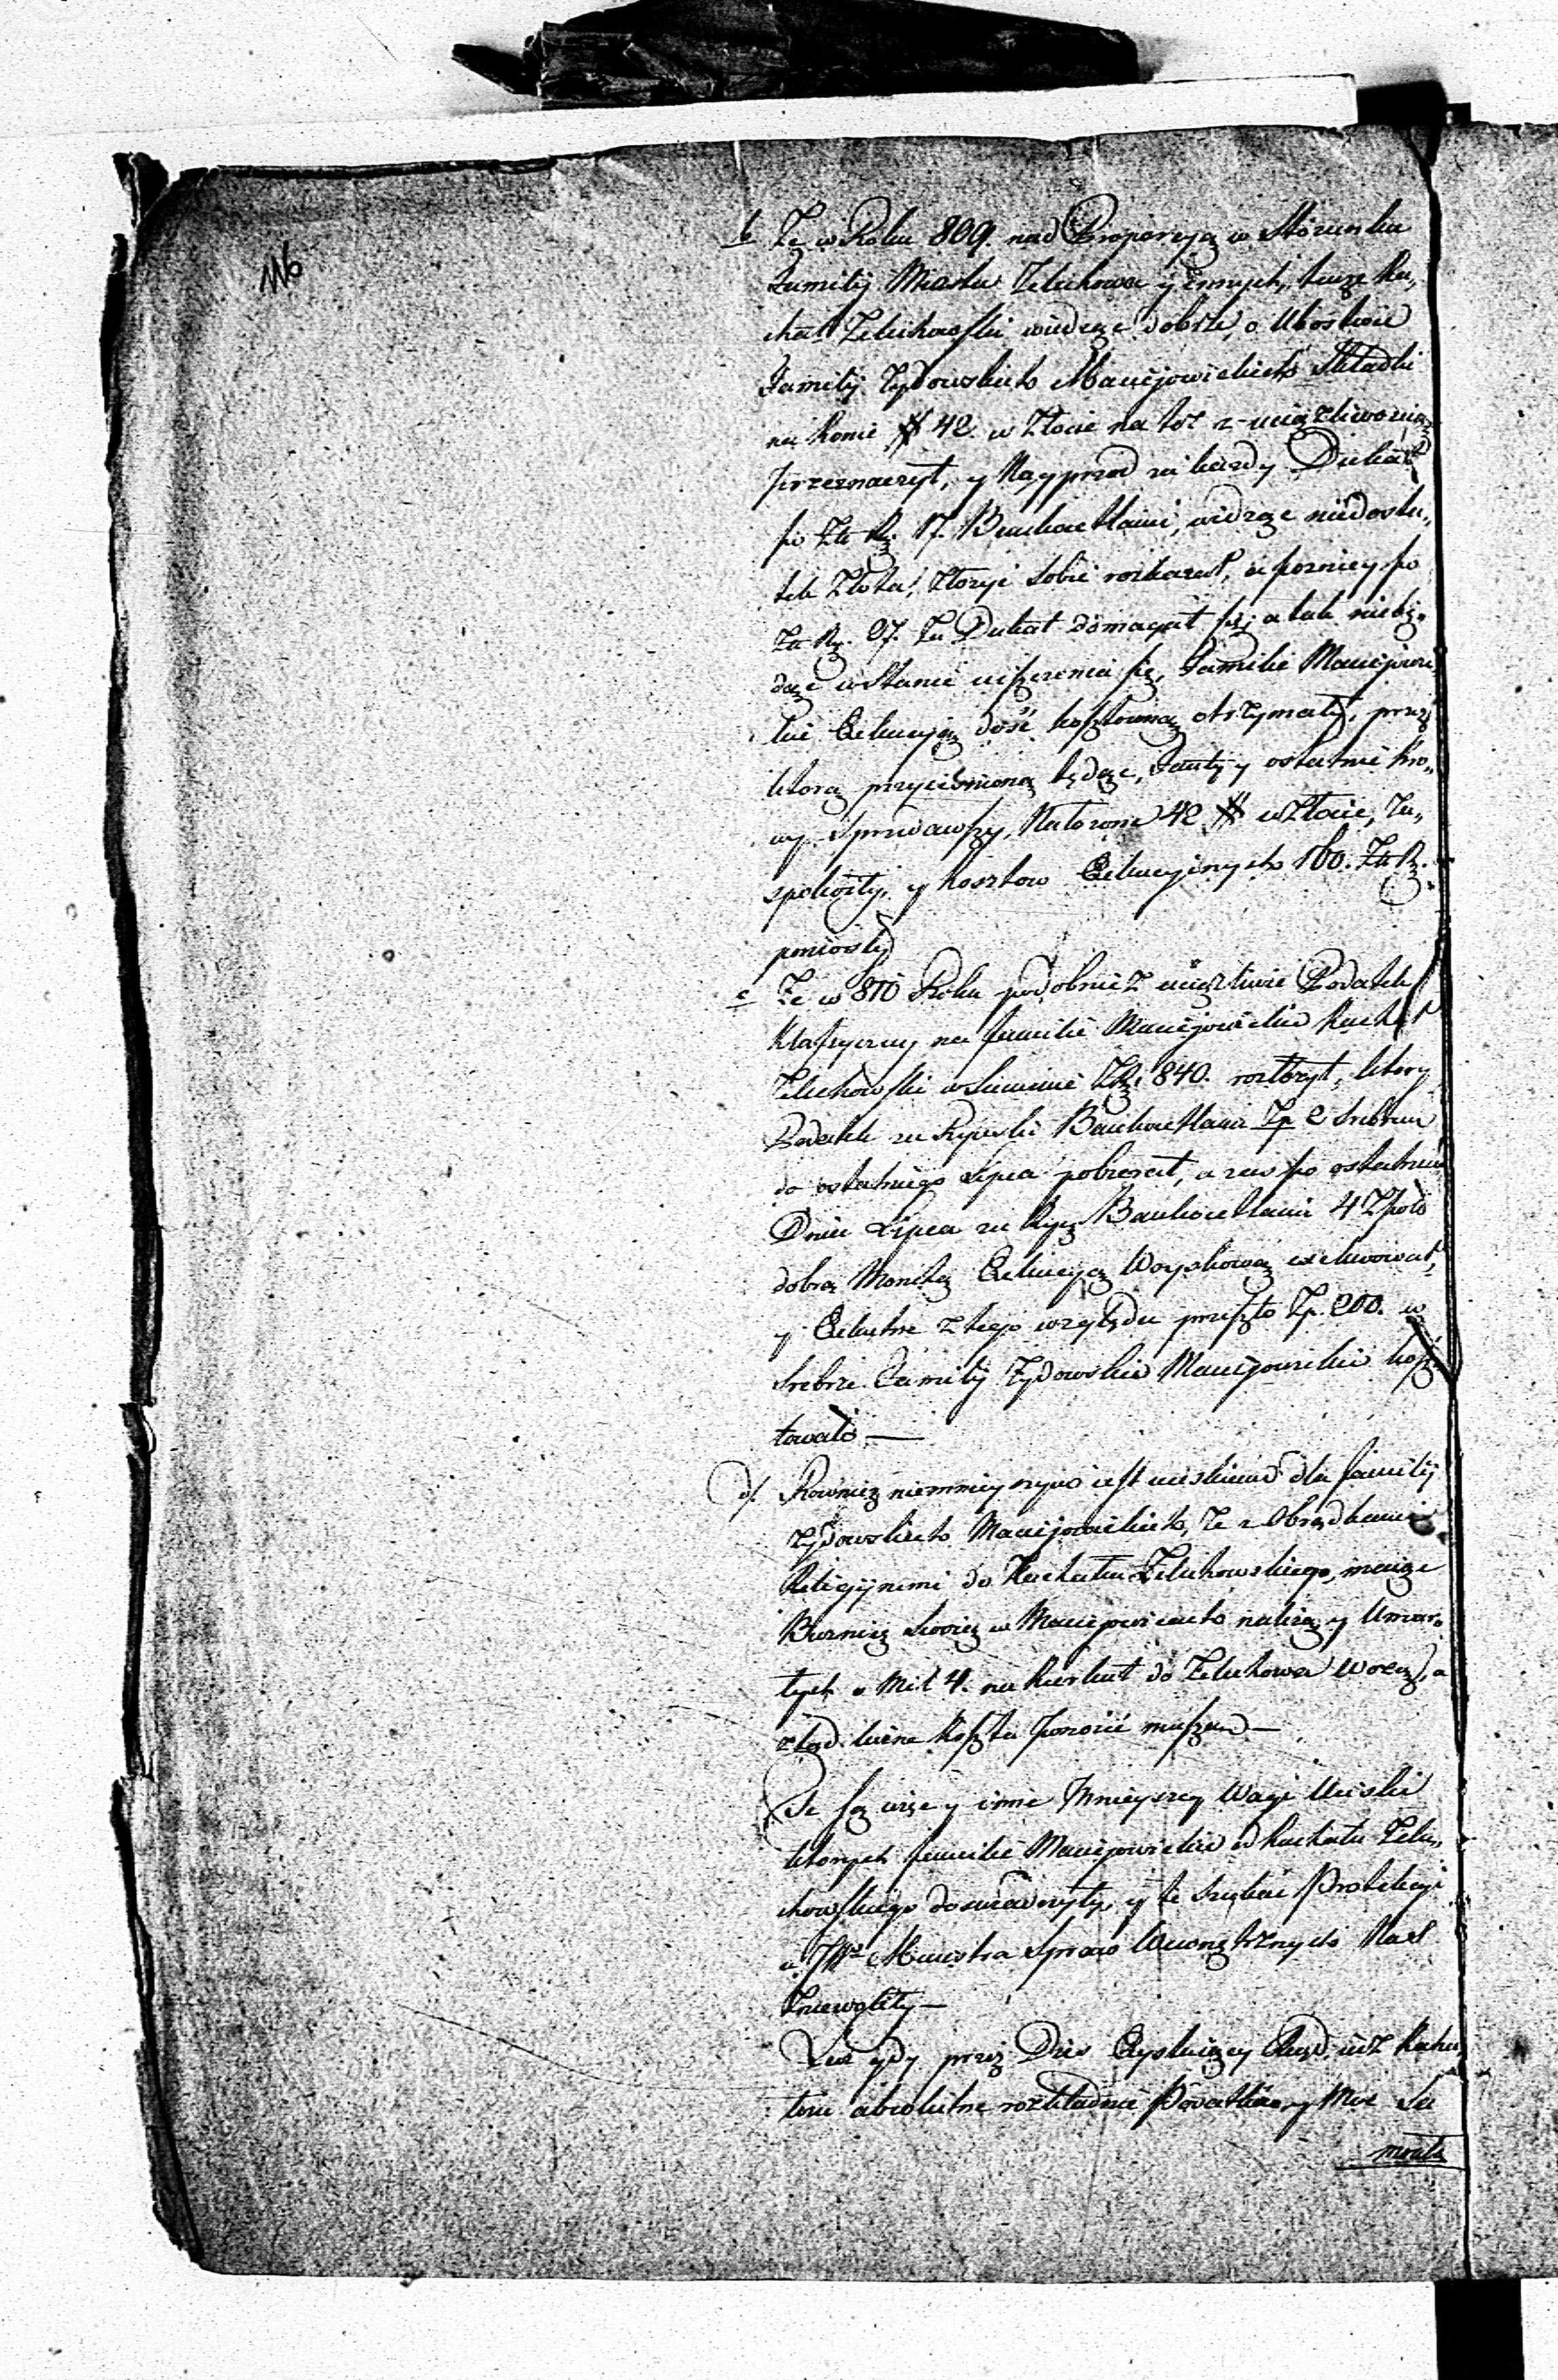 b Że w Roku 809. nad Proporcyą w Stósunku
Familij Miasta Żelichowa y innych, tenże Ka„
chał Żelichowski wiedząc dobrze, o Ubóstwie
Familij Żydowskich Maciejowickich Składki
na konie # 42. w Złocie na toż z uciążliwością
przeznaczył, y Nayprzod za każdy Dukat
po Zł Ry 17. Bankocetlami, widząc niedosta„
tek Złota, złożyć sobie rozkazał, a pozniey po
Zł Ry. 27. Za Dukat domagał się, a tak niebę„
dąc w Stanie uiszczenia się, Familie Maciejowic„
kie Exekucyią dość kosztowną otrzymały, przez
którą przyciśnioną będąc, Fanty y ostatnie kro„
wy sprzedawszy, Nałożone 42 # w Złocie, Za„
spokoiły, y kosztow Exekucyinych 160. Zł R.
poniosły
c Że w 810 Roku podobnież uciążliwie Podatek
Klassyczny na familie Maciejowickie Kachał
Żelichowski w Summie ZRy. 840. rozłożył, który
Podatek za Ryński Bankocetlami Zp 2 srebrem
do ostatniego Lipca pobierał, a zaś po ostatnim
Dniu Lipca za Ryń. Bankocetlami 4 Zpol
dobrą Monetą Exekucyą Woyskową exekwował,
y Exekutne z tego względu przeszło Zp. 200. w
srebrze Familij Żydowskie Maciejowickie kosz„
towało —
d. Rownież niemnieyszym iest uciskiem dla familij
Żydowskich Maciejowickich, że z Obrządkami
Religijnemi do Kachału Żelichowskiego, maiąc
Bożnicę swoię w Maciejowicach należą, y Umar„
łych o Mil 4. na kierkut do Żelichowa wożą, a
ztąd liczne koszta ponosić muszą —
Te są więc y inne Mnieyszey Wagi Uciski
ktorych familie Maciejowickie od Kachału Żeli„
chowskiego doświadczyły, y te szukać Protekcyi
u JW Ministra Spraw Wewnętrznych Nas
Zniewoliły —
Lecz gdy przez Dziś Exystuiący Rząd, iuż Kacha„
łom absolutne rozkładanie Podatkow, y Moc Sa
mowła